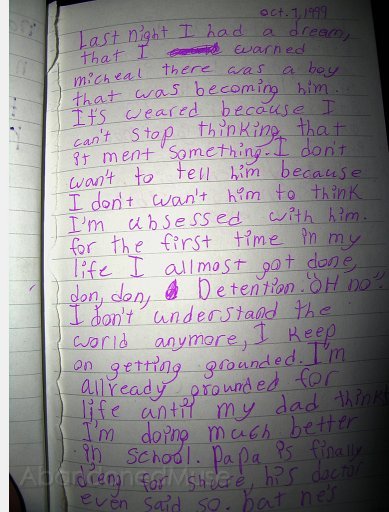 oct.7,1999
Last night I had a dream,
that I warned
micheal there was a boy
that was becoming him...
It's weared because I
can't stop thinking that
it ment something. I don't
wan't to tell him because
I don't wan't him to think
I'm ubsessed with him.
for the first time in my
life I allmost got done,
don, don, Detention. "OH no".
I don't understand the
world anymore, I keep
on getting grounded. I'm
allready grounded for
life until my dad thinks
I'm doing much better
in school. Papa is finally
dieing for shure, his doctor
even said so. but he's
AbandonedMuse